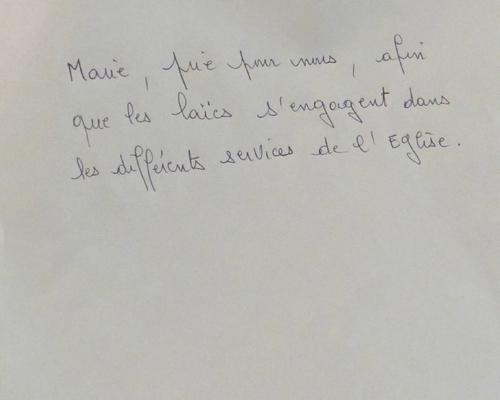 Marie, prie pour nous, afin
que les laïcs s'engagent dans
les différents services de l'Eglise.